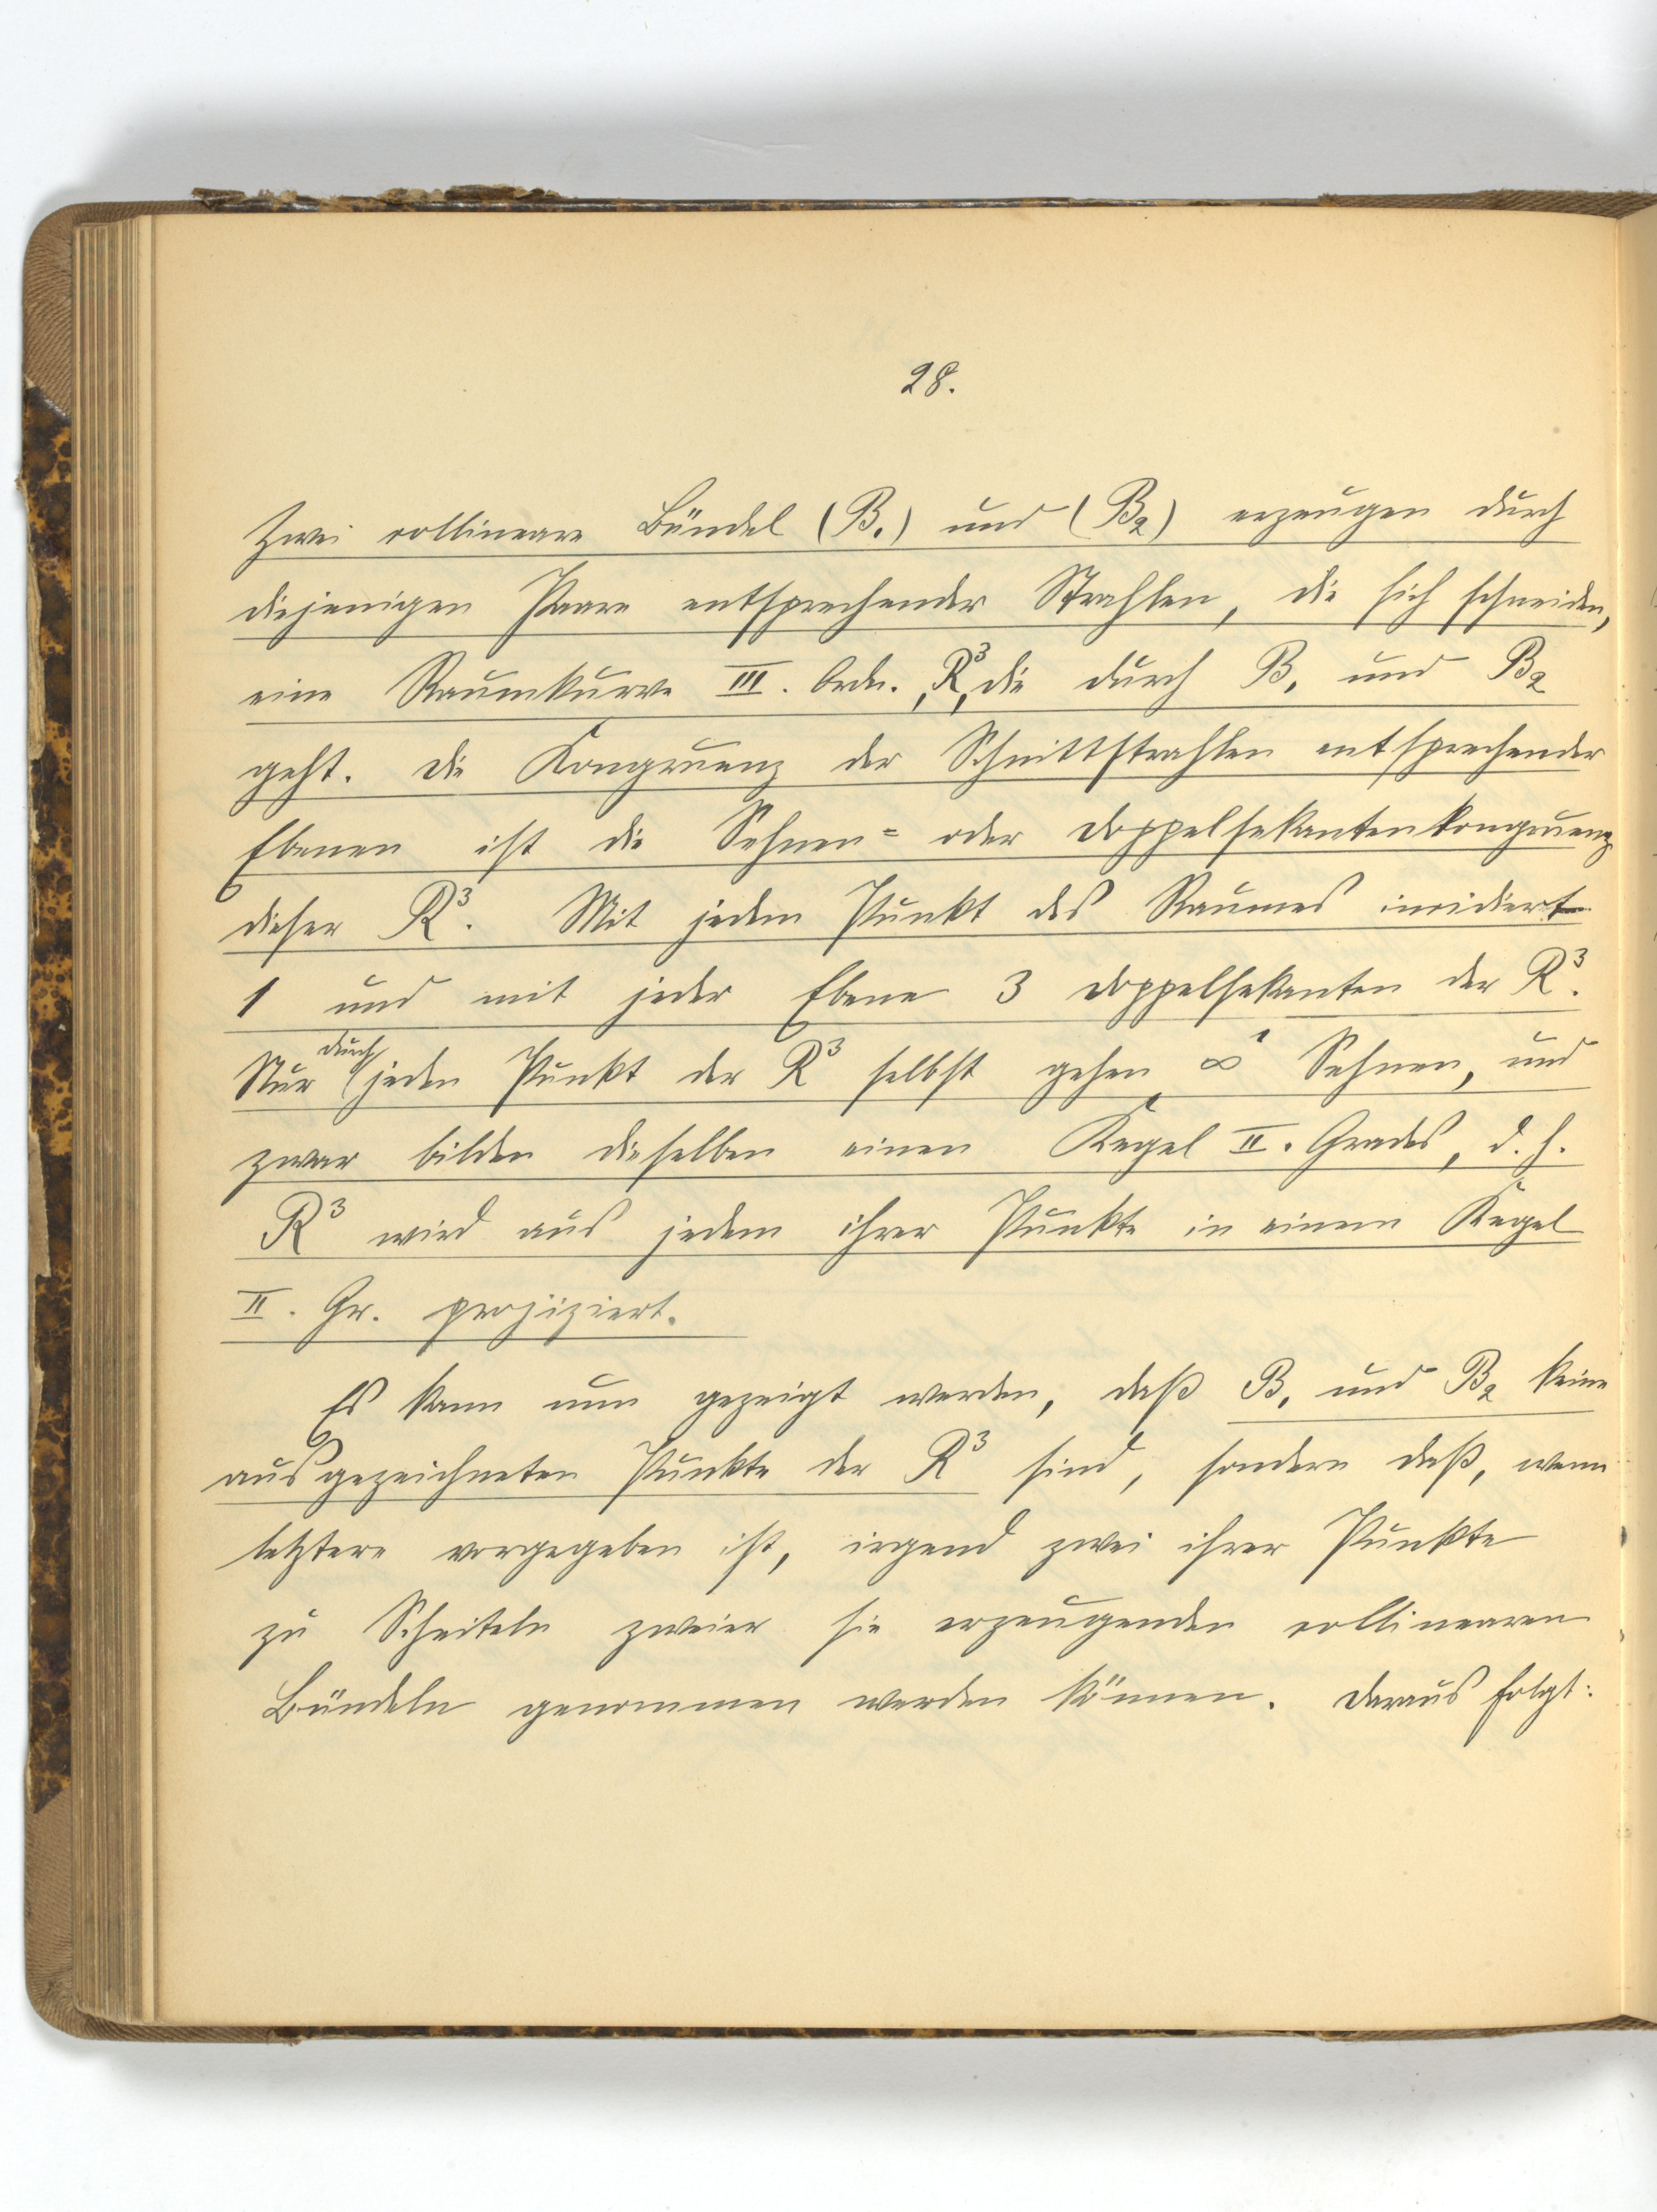 28.
Zwei collineare Bündel (B₁) und (B₂) erzeugen durch
diejenigen Paare entsprechender Strahlen, die sich schneiden,
eine Raumkurve III. Ordn., R³, die durch B₁ und B₂
geht. Die Kongruenz der Schnittstrahlen entsprechender
Ebenen ist die Sehnen= oder Doppelsekantenkongruenz
dieser R³. Mit jedem Punkt des Raumes incidiert
1 und mit jeder Ebene 3 Doppelsekanten der R³.
Nur durch jeden Punkt der R³ selbst gehen ∞¹ Sehnen, und
zwar bilden dieselben einen Kegel II. Grades, d. h.
R³ wird aus jedem ihrer Punkte in einem Kegel
II. Gr. projiziert.
Es kann nun gezeigt werden, daß B₁ und B₂ keine
ausgezeichneten Punkte der R³ sind, sondern daß, wenn
letztere vorgegeben ist, irgend zwei ihrer Punkte
zu Scheiteln zweier sie erzeugenden collinearen
Bündeln genommen werden können. Daraus folgt: